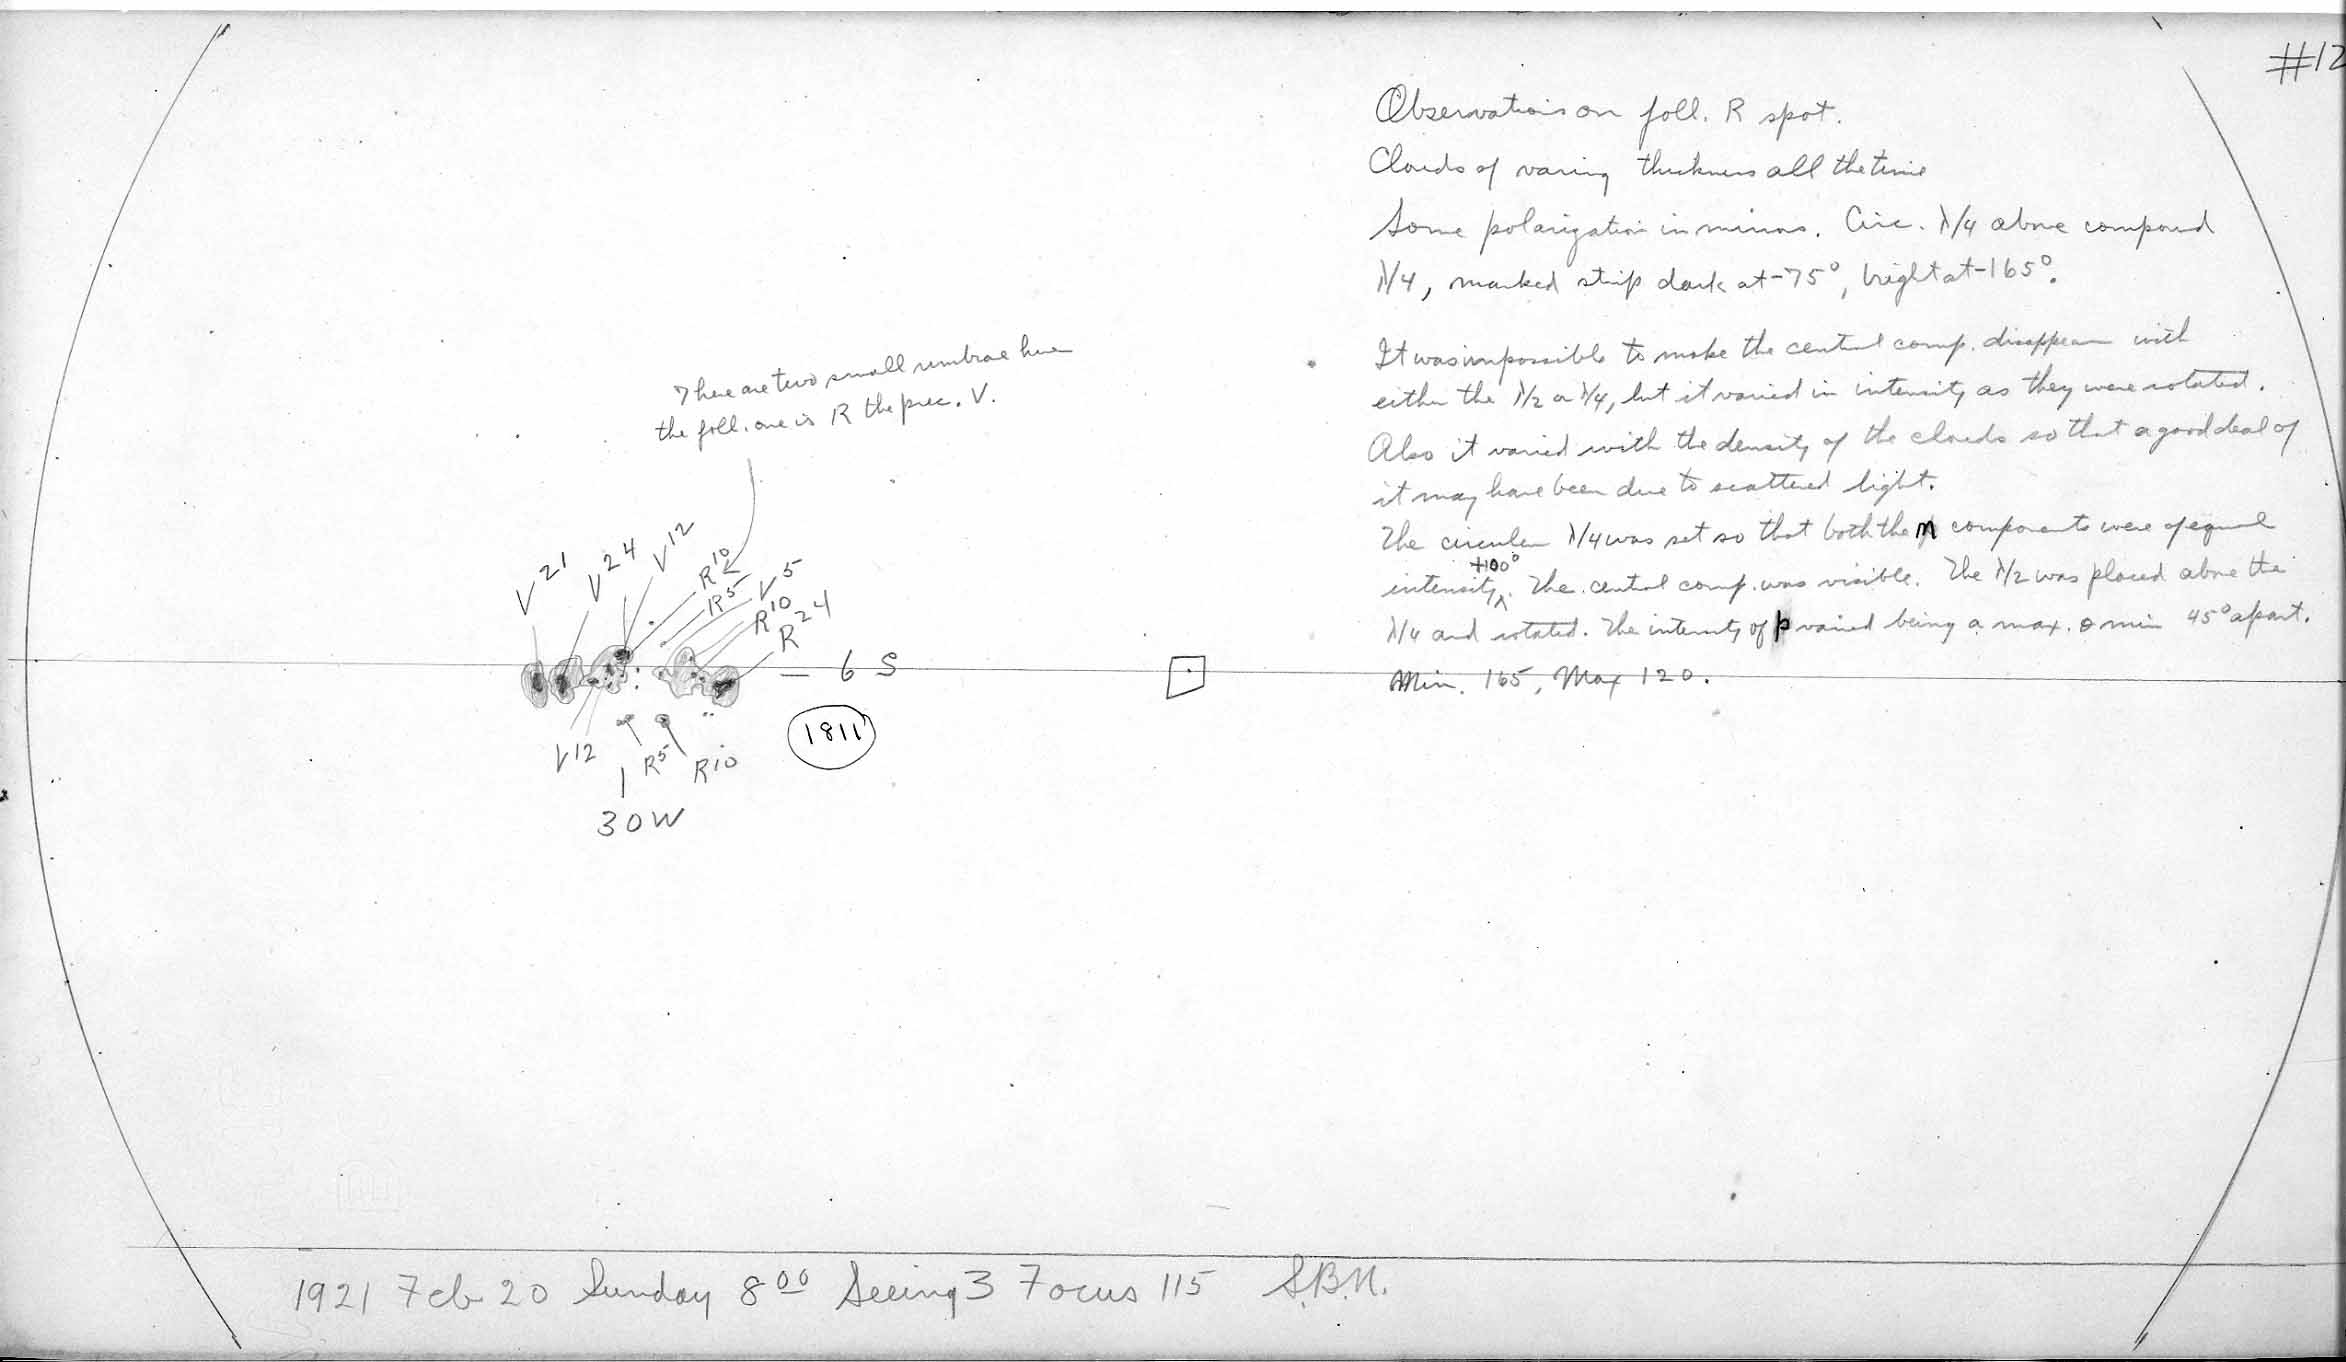 #12
Observations on foll. R spot.
Clouds of varing thickness all the time
Some polarization in mirrors. Circ. λ/4 above compound
λ/4, marked strip dark at -75°, bright at -165°.
It was impossible to make the central comp. disappear with
either the λ/2 or λ/4, but it varied in intensity as they were rotated.
Also it varied with the density of the clouds so that a good deal of
it may have been due to scattered light.
The circular λ/4 was set so that both the n components were of equal
+100°
intensity. The central comp. was visible. The λ/2 was placed above the
λ/4 and rotated. The intensity of p varied being a max. & min 45° apart.
Min. 165, Max 120.
There are two small umbrae here
the foll. one is R the prec. V.
V21
V24
V12
R10
R5
V5
R10
R24
— 6 S
1811
V12
R5
R10
30W
1921 Feb 20 Sunday 8 00 Seeing 3 Focus 115 S.B.N.